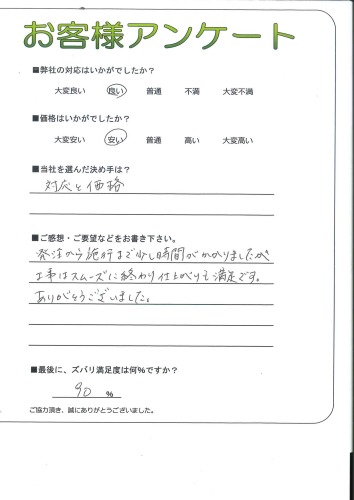 お客様アンケート
■弊社の対応はいかがでしたか？
大変良い 良い 普通 不満 大変不満
■価格はいかがでしたか？
大変安い 安い 普通 高い 大変高い
■当社を選んだ決め手は？
対応と価格
■ご感想・ご要望などをお書き下さい。
発注から施行まで少し時間がかかりましたが
工事はスムーズに終わり仕上がりも満足です。
ありがとうございました。
■最後に、ズバリ満足度は何%ですか？
90 %
ご協力頂き、誠にありがとうございました。